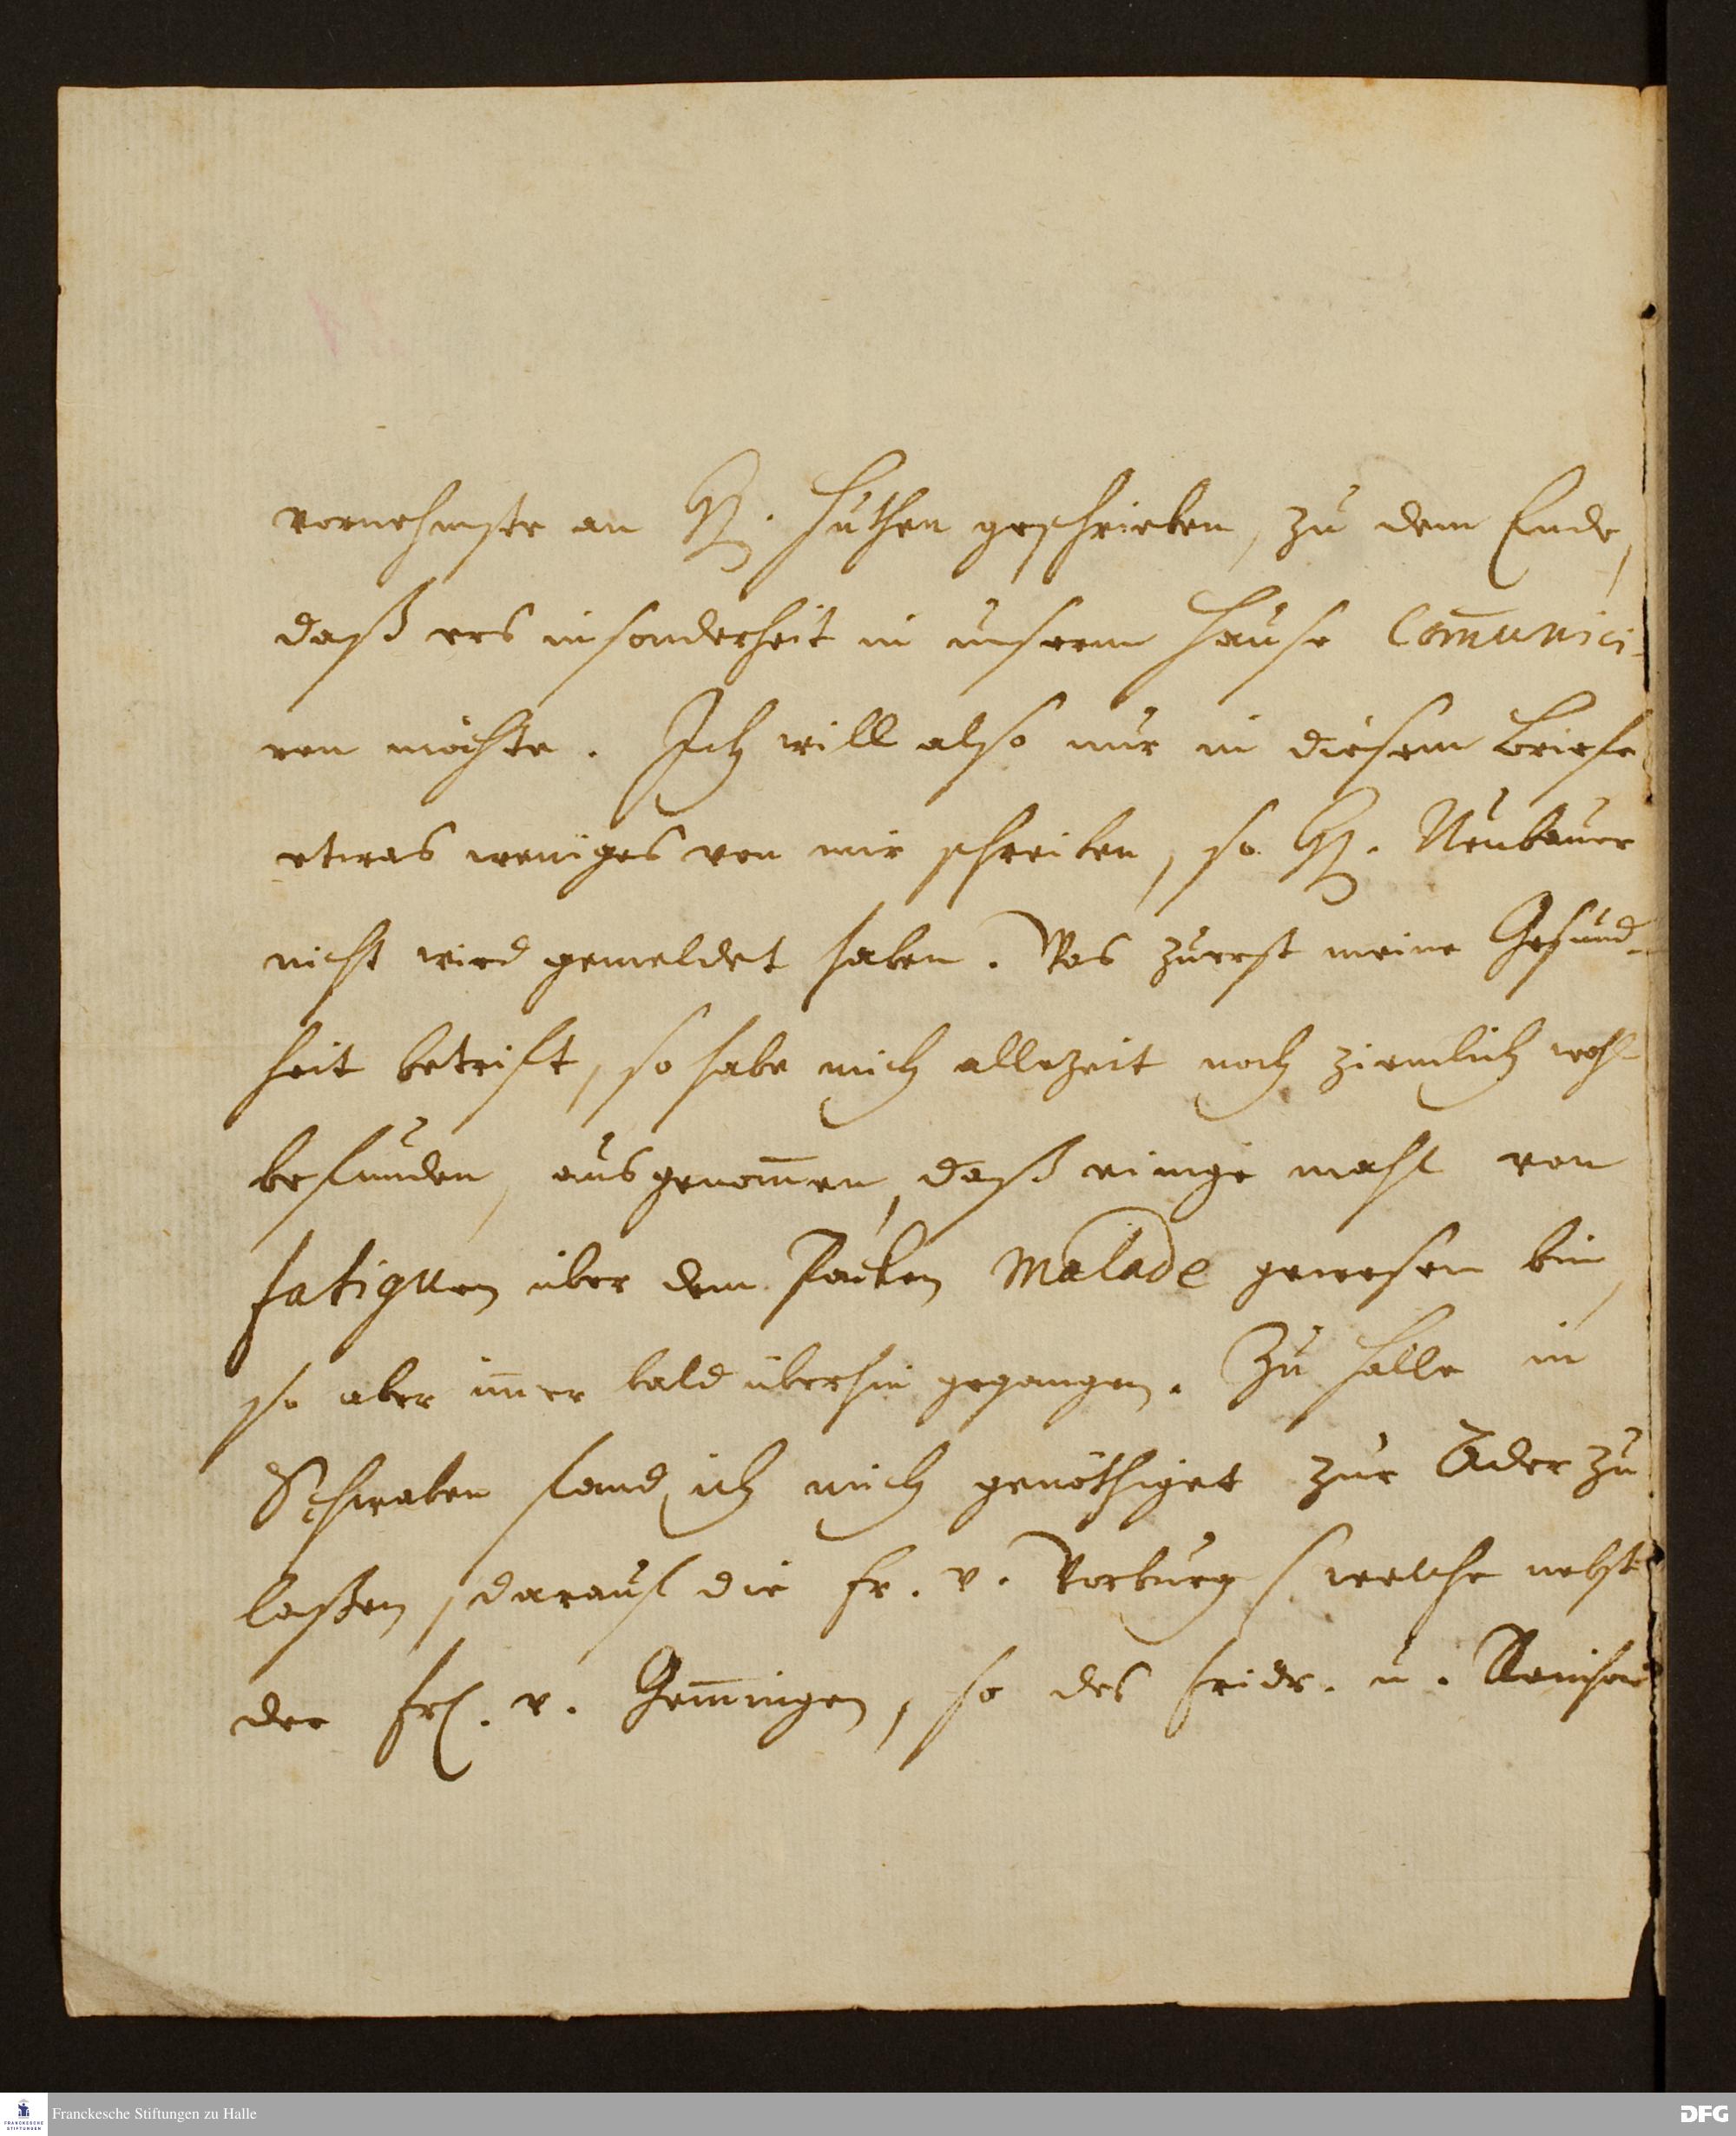 vornehmste an H. Huthen geschrieben, zu dem Ende,
daß ers insonderheit in unserm Hause Com̄unici-
ren möchte. Ich will also nur in diesem Briefe
etwas weniges von mir schreiben, so H. Neubauer
nicht wird gemeldet haben. Was zuerst meine Gesund-
heit betrift, so habe mich allezeit noch ziemlich wohl
befunden, ausgenom̄en, daß einige mahl von
fatiquen über dem Packen malade gewesen bin,
so aber im̄er bald überhin gegangen. Zu Halle in
Schwaben fand ich mich genöthiget zur Ader zu
laßen, darauf die Fr. v. Vorburg (welche nebst
der Frl. v. Gem̄ingen, so des Fridr. u.
Franckesche Stiftungen zu Halle
FRANCKESCHE
STIFTUNGEN
DFG